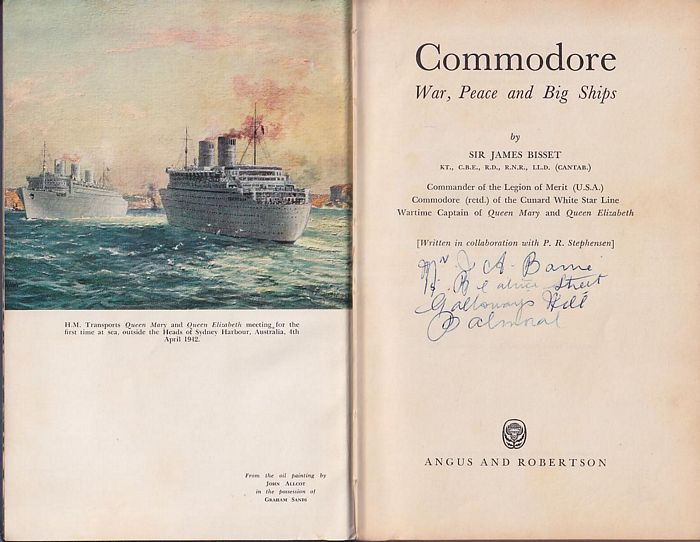 H.M. Transports Queen Mary and Queen Elizabeth meeting for the
first time at sea, outside the Heads of Sydney Harbour, Australia, 4th
April 1942.
From the oil painting by
JOHN ALLCOT
in the possession of
GRAHAM SANDS
Commodore
War, Peace and Big Ships
by
SIR JAMES BISSET
KT., C.B.E., R.D., R.N.R., LL.D. (CANTAB.)
Commander of the Legion of Merit (U.S.A.)
Commodore (retd.) of the Cunard White Star Line
Wartime Captain of Queen Mary and Queen Elizabeth
[Written in collaboration with P. R. Stephensen]
Mr J A.
Street
Galloways Hill
Balmoral
ANGUS AND ROBERTSON